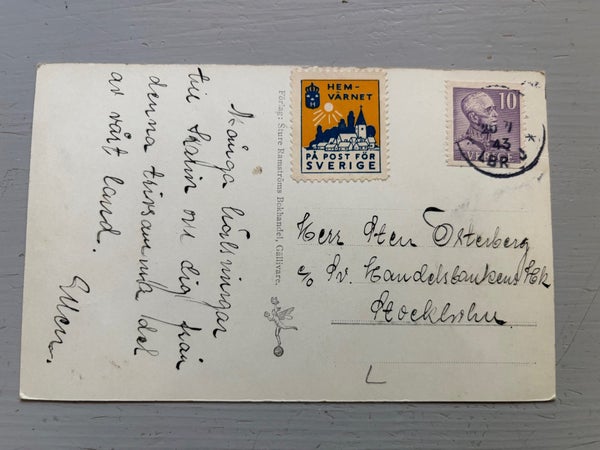 Många hälsningar
till och dig från
denna trivsamma del
av vårt land.
Ellen.
Förlag: Sture Ramströms Bokhandel, Gällivare.
HEM-
VÄRNET
H
PÅ POST FÖR
SVERIGE
10
20 7
43
Herr Sten Österberg
c/o Sv. Handelsbanken Hk
Stockholm
L